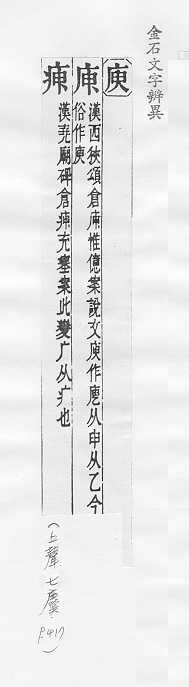 金石文字辨異
庾
漢西狹頌倉惟億案說文庾作从申从乙今
俗作庾
漢堯廟碑倉充塞案此變广从疒也
(上聲七麌. P.417)